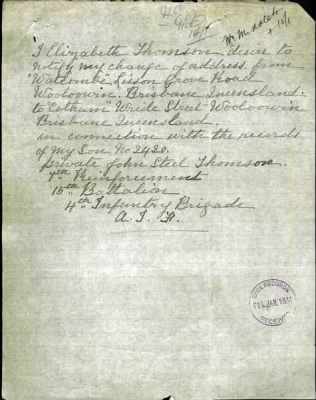 I Elizabeth Thomson desire to
notify my change of address from
"Watcombe" Lisson Grove Road
Wooloowin. Brisbane Queensland.
to "Cotham" Write Street Wooloowin
Brisbane Queensland.
in connection with the records
of my Son No 2420.
Private John Steel Thomson.
7th Reinforcement
15th Battalion
4th Infantry Brigade
A. I. F.
RECORDS
JAN
RECEIVED